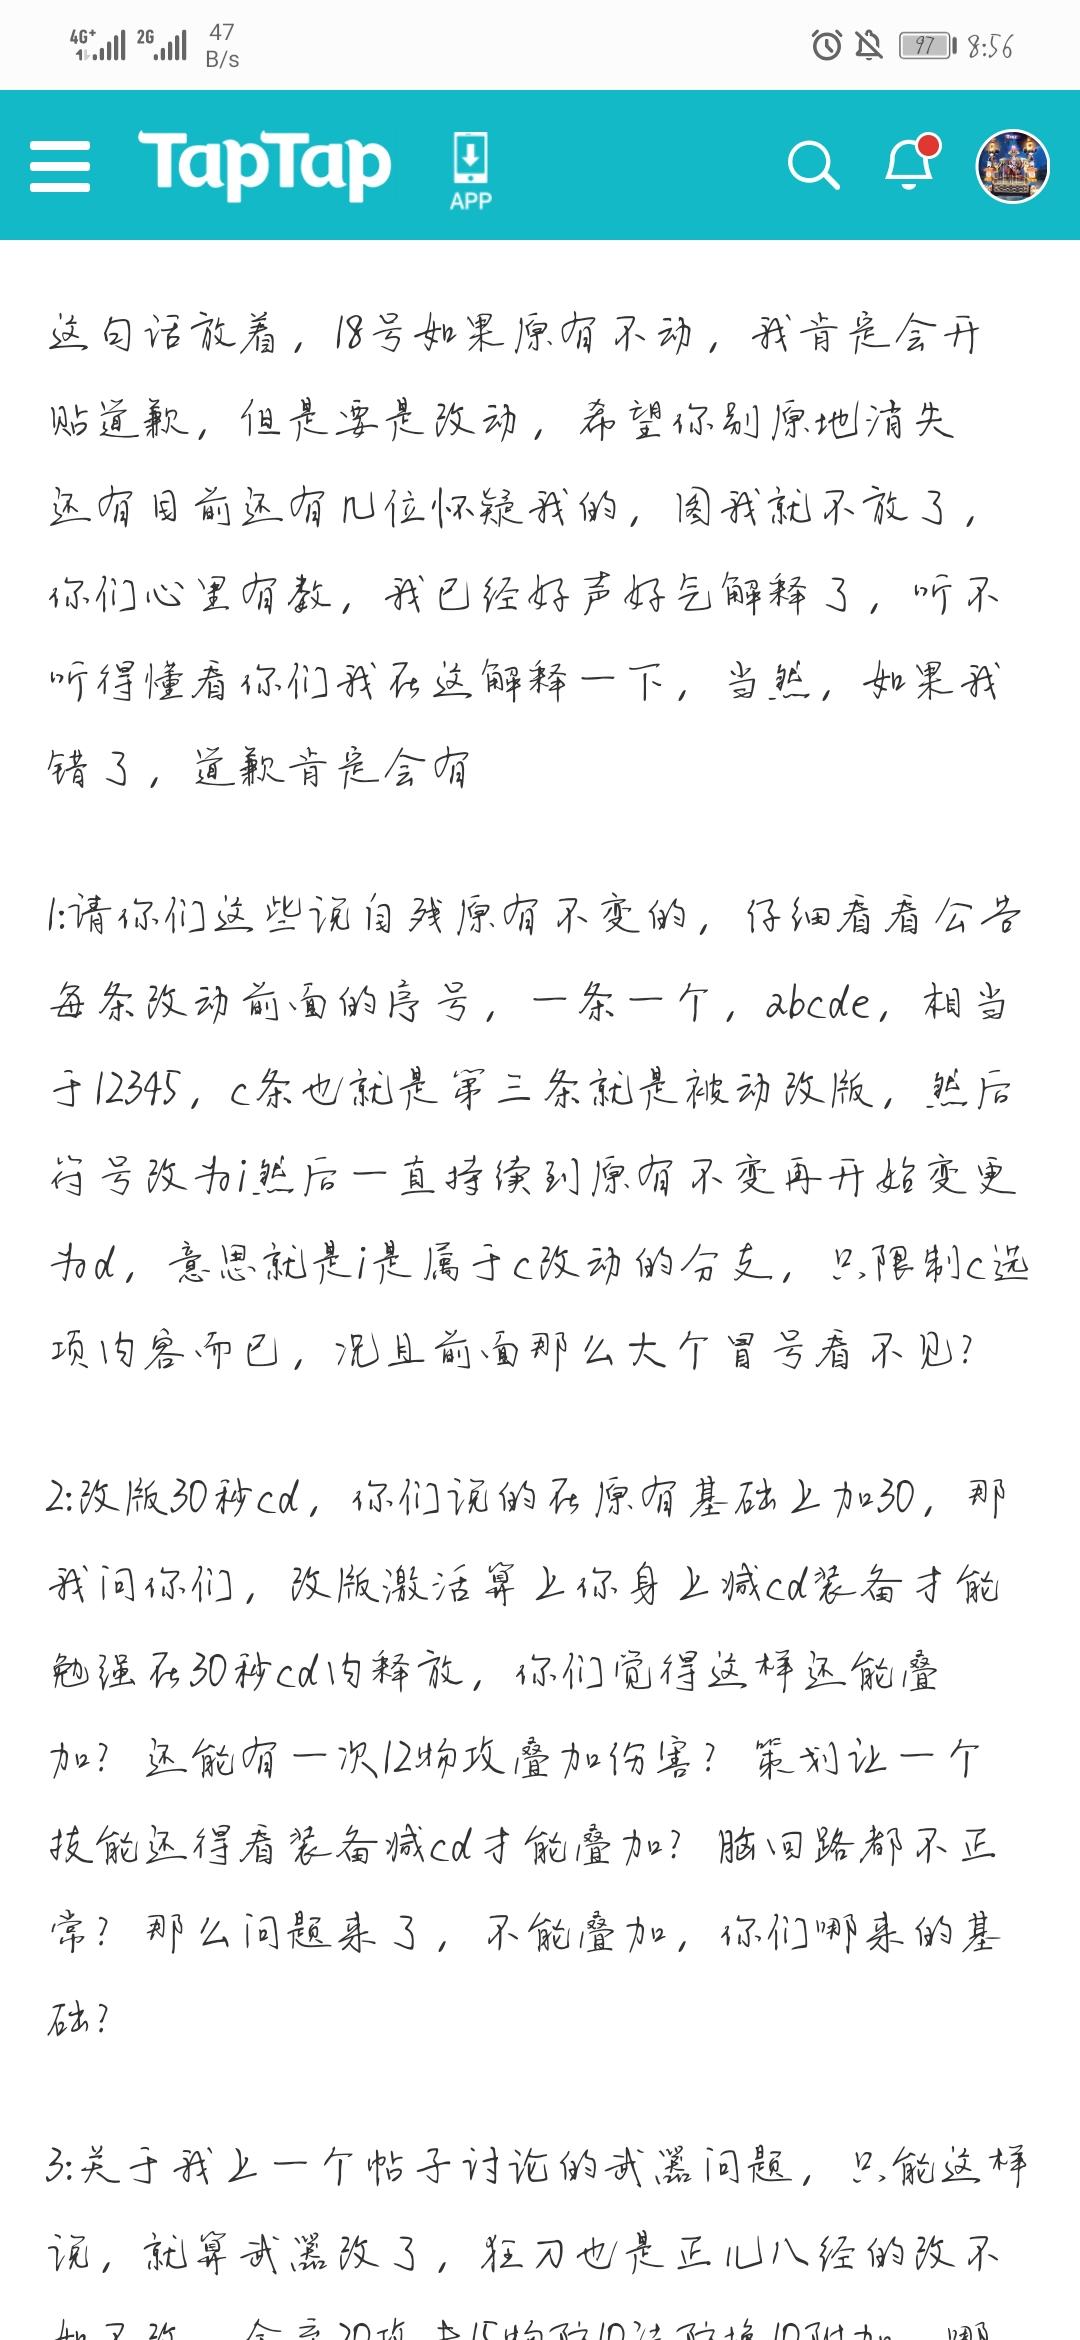 4G+ 2G 47 B/s 97 8:56
TapTap APP
这句话放着，18号如果原有不动，我肯定会开
贴道歉，但是要是改动，希望你别原地消失
还有目前还有几位怀疑我的，图我就不放了，
你们心里有数，我已经好声好气解释了，听不
听得懂看你们我在这解释一下，当然，如果我
错了，道歉肯定会有
1:请你们这些说自残原有不变的，仔细看看公告
每条改动前面的序号，一条一个，abcde，相当
于12345，c条也就是第三条就是被动改版，然后
符号改为i然后一直持续到原有不变再开始变更
为d，意思就是i是属于c改动的分支，只限制c选
项内容而已，况且前面那么大个冒号看不见？
2:改版30秒cd，你们说的在原有基础上加30，那
我问你们，改版激活算上你身上减cd装备才能
勉强在30秒cd内释放，你们觉得这样还能叠
加？还能有一次12物攻叠加伤害？策划让一个
技能还得看装备减cd才能叠加？脑回路都不正
常？那么问题来了，不能叠加，你们哪来的基
础？
3:关于我上一个帖子讨论的武器问题，只能这样
说，就算武器改了，狂刀也是正儿八经的改不